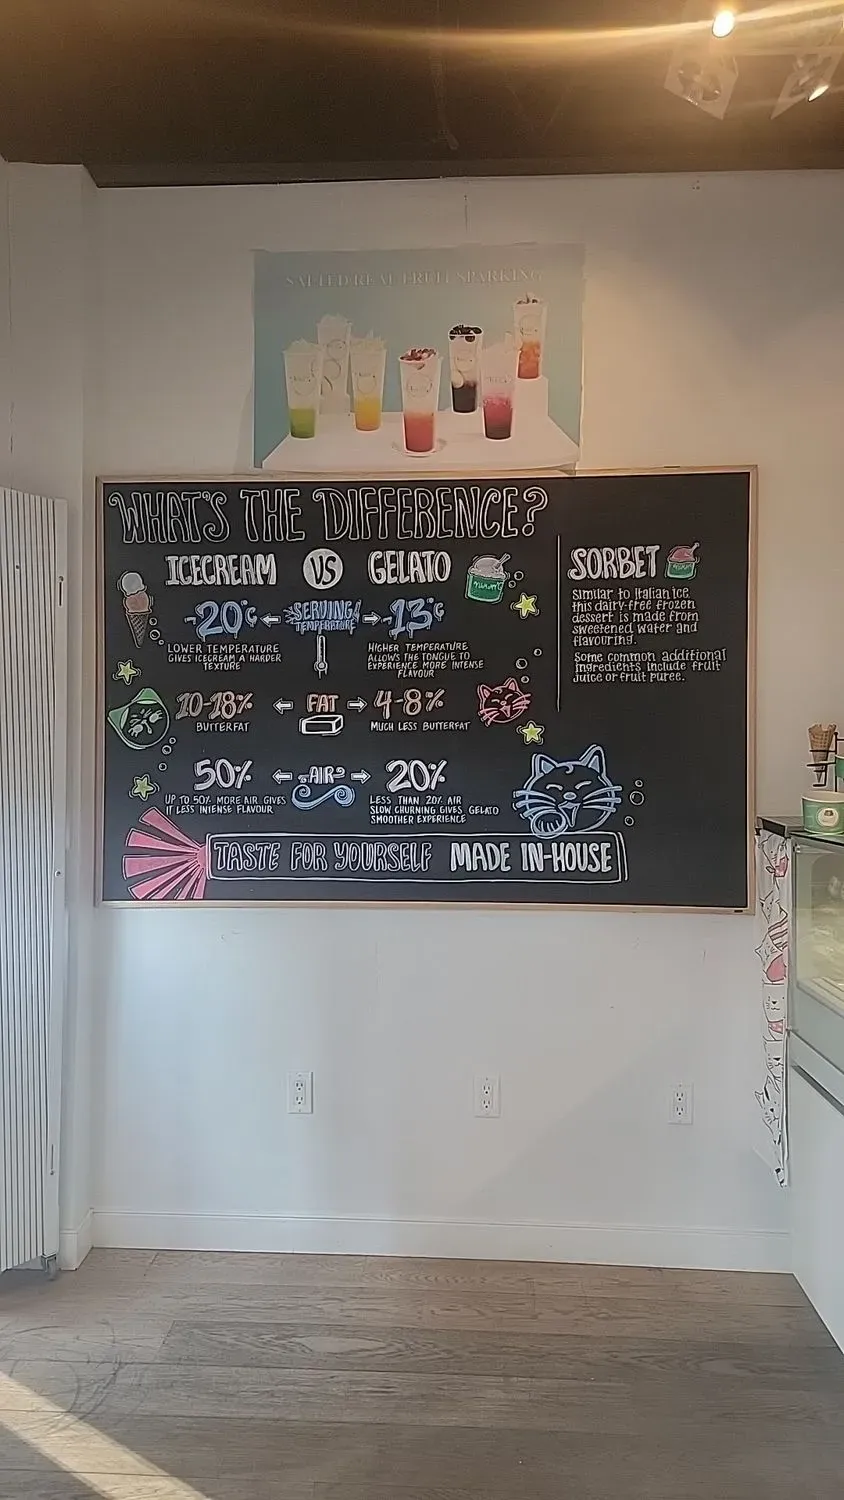 SALTED REAL FRUIT SPARKING
WHAT'S THE DIFFERENCE?
ICECREAM VS GELATO
-20°C ← SERVING TEMPERATURE → -13°C
LOWER TEMPERATURE
GIVES ICECREAM A HARDER
TEXTURE
HIGHER TEMPERATURE
ALLOWS THE TONGUE TO
EXPERIENCE MORE INTENSE
FLAVOUR
10-18% ← FAT → 4-8%
BUTTERFAT
MUCH LESS BUTTERFAT
50% ← AIR → 20%
UP TO 50% MORE AIR GIVES
IT LESS INTENSE FLAVOUR
LESS THAN 20% AIR
SLOW CHURNING GIVES GELATO
SMOOTHER EXPERIENCE
TASTE FOR YOURSELF MADE IN-HOUSE
SORBET
Similar to Italian Ice,
this dairy-free frozen
dessert is made from
sweetened water and
flavouring.
Some common additional
ingredients include fruit
juice or fruit puree.